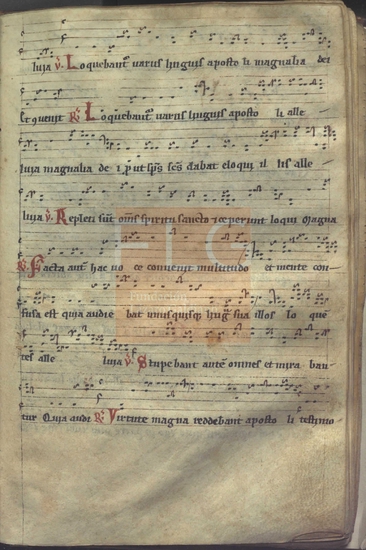 luia ℣. Loquebant᷑ variis linguis aposto li magnalia dei
Et quenit ℟. Loquebant᷑ variis linguis aposto li alle
luia magnalia de i. put sp̄s sc̄s dabat eloqui il lis alle
luia ℣. Repleti sūt om̄s spiritu sancto ⁊ ceperunt loqui Magna
℟. Facta aut̄ hac uo ce conuenit multitudo et mente con
fusa est quia audie bat unusquisq; lıg̅ sua illos lo quē
tes alle luia ℣. Stupebant autē omnes et mira ban
tur Quia audi ℟. Virtute magna reddebant aposto li testimo